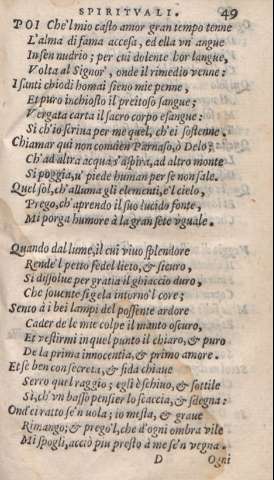 SPIRITVALI. 49
POI Che'l mio casto amor gran tempo tenne
L'alma di fama accesa, ed ella vn'angue
In sen nudrio; per cui dolente hor langue,
Volta al Signor', onde il rimedio venne:
I santi chiodi homai sieno mie penne,
Et puro inchiostro il pretioso sangue;
Vergata carta il sacro corpo esangue:
Si ch'io scriua per me quel, ch'ei sostenne.
Chiamar qui non conuien Parnaso, ò Delo;
Ch'ad altra acqua s'aspira, ad altro monte
Si poggia, u' piede human per se non sale.
Quel sol, ch'alluma gli elementi, e'l cielo,
Prego, ch'aprendo il suo lucido fonte,
Mi porga humore à la gran sete vguale.
Quando dal lume, il cui viuo splendore
Rende'l petto fedel lieto, & sicuro,
Si dissolue per gratia il ghiaccio duro,
Che souente si gela intorno'l core;
Sento à i bei lampi del possente ardore
Cader de le mie colpe il manto oscuro,
Et vestirmi in quel punto il chiaro, & puro
De la prima innocentia, & primo amore.
Et se ben con secreta, & fida chiaue
Serro quel raggio; egli è schiuo, & sottile
Sì, ch'vn basso pensier lo scaccia, & sdegna:
Ond'ei ratto se'n uola; io mesta, & graue
Rimango; & prego'l, che d'ogni ombra vile
Mi spogli, acciò piu presto à me se'n vegna.
D Ogni